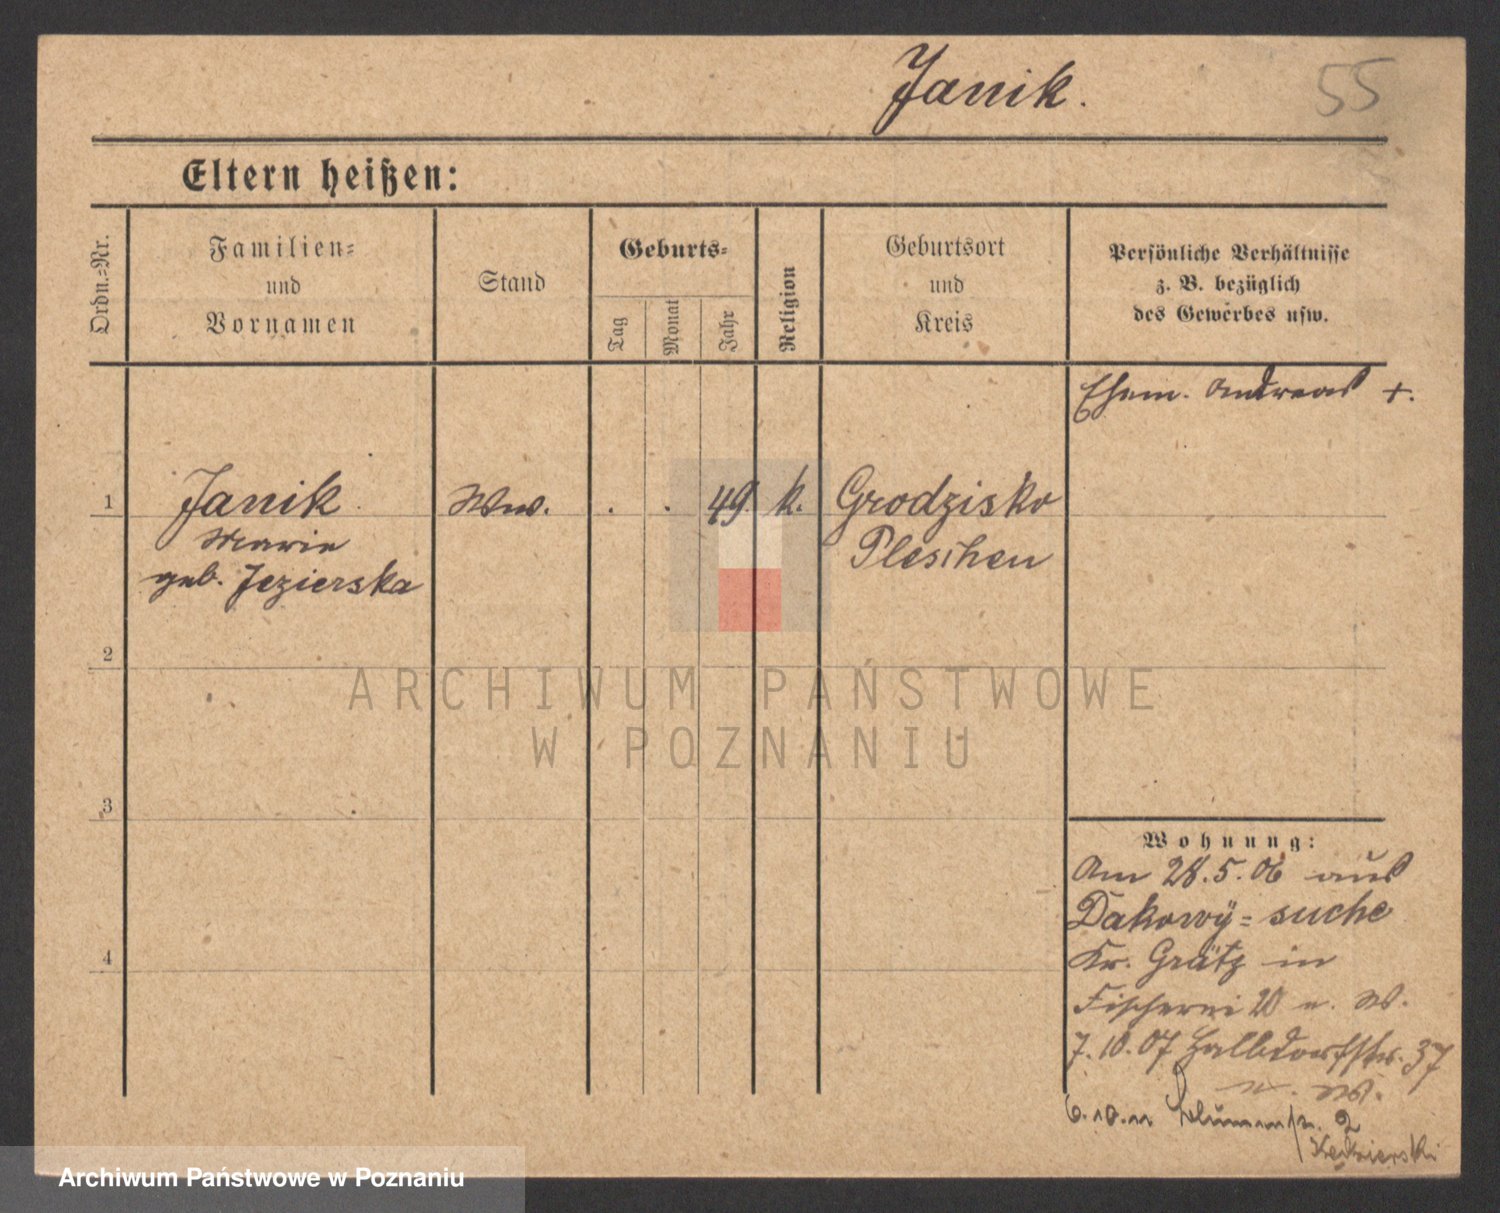 Janik.
55
Eltern heißen:
Ordn.=Nr.
Familien=
und
Vornamen
Stand
Geburts=
Tag
Monat
Jahr
Religion
Geburtsort
und
Kreis
Persönliche Verhältnisse
z. B. bezüglich
des Gewerbes usw.
Ehem. Andreas +.
1
Janik
Marie
geb. Jezierska
Ww.
. . 49. k.
Grodzisko
Pleschen
2
3
4
ARCHIWUM PAŃSTWOWE
W POZNANIU
Wohnung:
Am 28.5.06 aus
Dakowÿ=suche
Kr. Grätz in
Fischerei 20 u. W.
7.10.07 Halbdorfstr. 37
u. W.
6.10.11 Blumenstr. 2
Archiwum Państwowe w Poznaniu